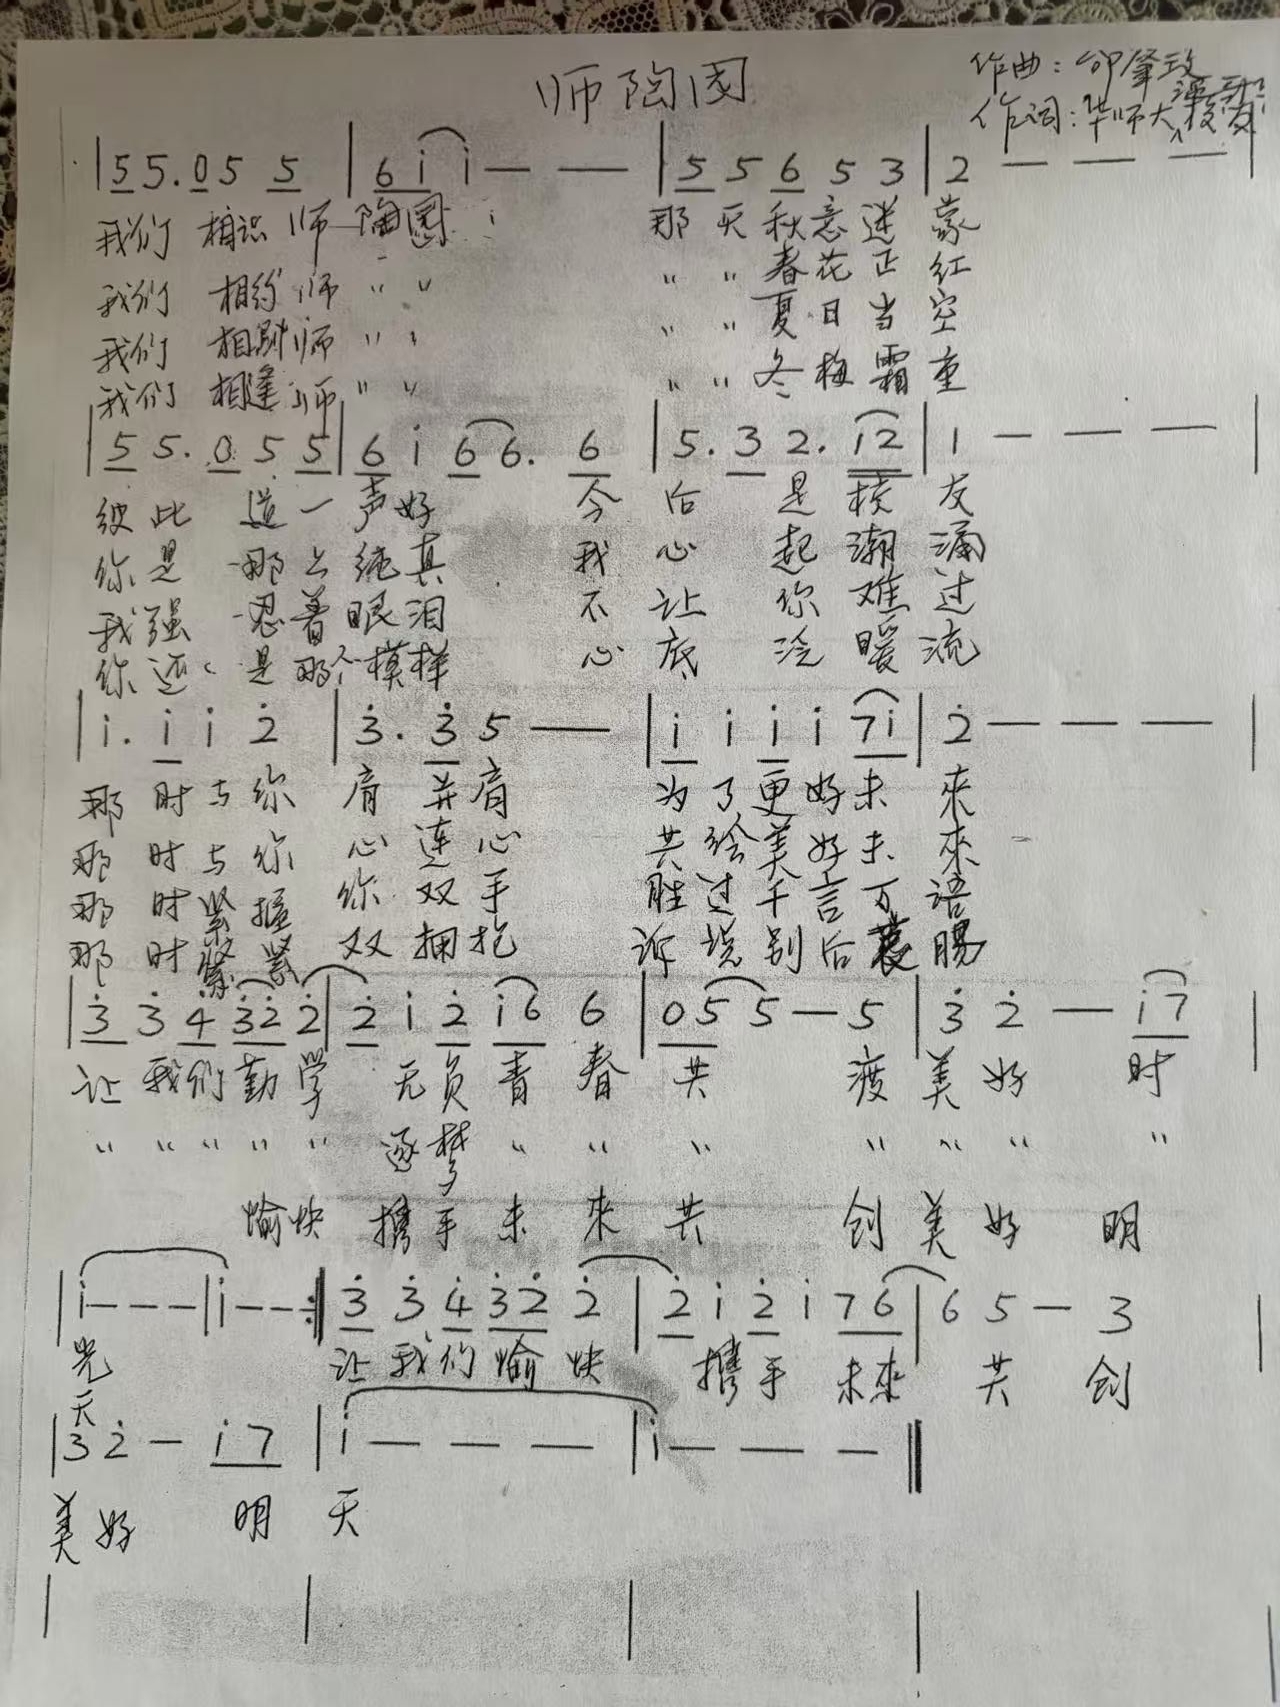 师陶园
作曲: 邹肇玫
作词: 华师大深圳校友
| 5 5. 0 5 5 | 6 i i — — | 5 5 6 5 3 | 2 — — — |
我们 相识 师 陶园 那天秋意迷蒙
我们 相约 师 " " " " 春花正红
我们 相别 师 " " " " 夏日当空
我们 相逢 师 " " " " 冬梅霜重
| 5 5. 0 5 5 | 6 i 6 6. 6 | 5. 3 2. i 2 | 1 — — — |
彼此 道一声好 今后是校友
你是 那么纯真 我心起潮涌
我强 忍着眼泪 不让你难过
你还 是那个模样 心底冷暖流
| i. i i 2 | 3. 3 5 — — | i i i i 7 i | 2 — — — |
那时与你 肩并肩 为了更好未来
那时与你 心连心 共绘美好未来
那时紧握 你双手 胜过千言万语
那时紧紧 双拥抱 诉说别后衷肠
| 3 3 4 3 2 2 | 2 i 2 i 6 6 | 0 5 5 — 5 | 3 2 — i 7 |
让我们勤学 无负青春 共渡美好时
" " " " " 逐梦 " " " " " " "
愉快 携手未来 共创美好明
| i - - - | i - - - :| 3 3 4 3 2 2 | 2 i 2 i 7 6 | 6 5 — 3
光 让我们愉快 携手未来 共创
天
| 3 2 — i 7 | i — — — | i — — — ||
美好 明 天